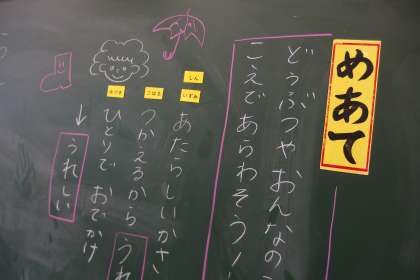 めあて
どうぶつやおんなの
こえであらわそう！
しん
いずみ
こはる
あたらしいかさ
つかえるから うれ
ひとりで おでかけ
うれしい